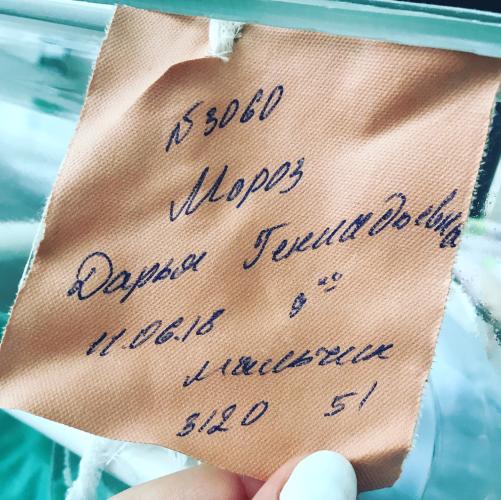 №3060
Мороз
Дарья Геннадьевна
11.06.18 9⁴⁰
мальчик
3120 51